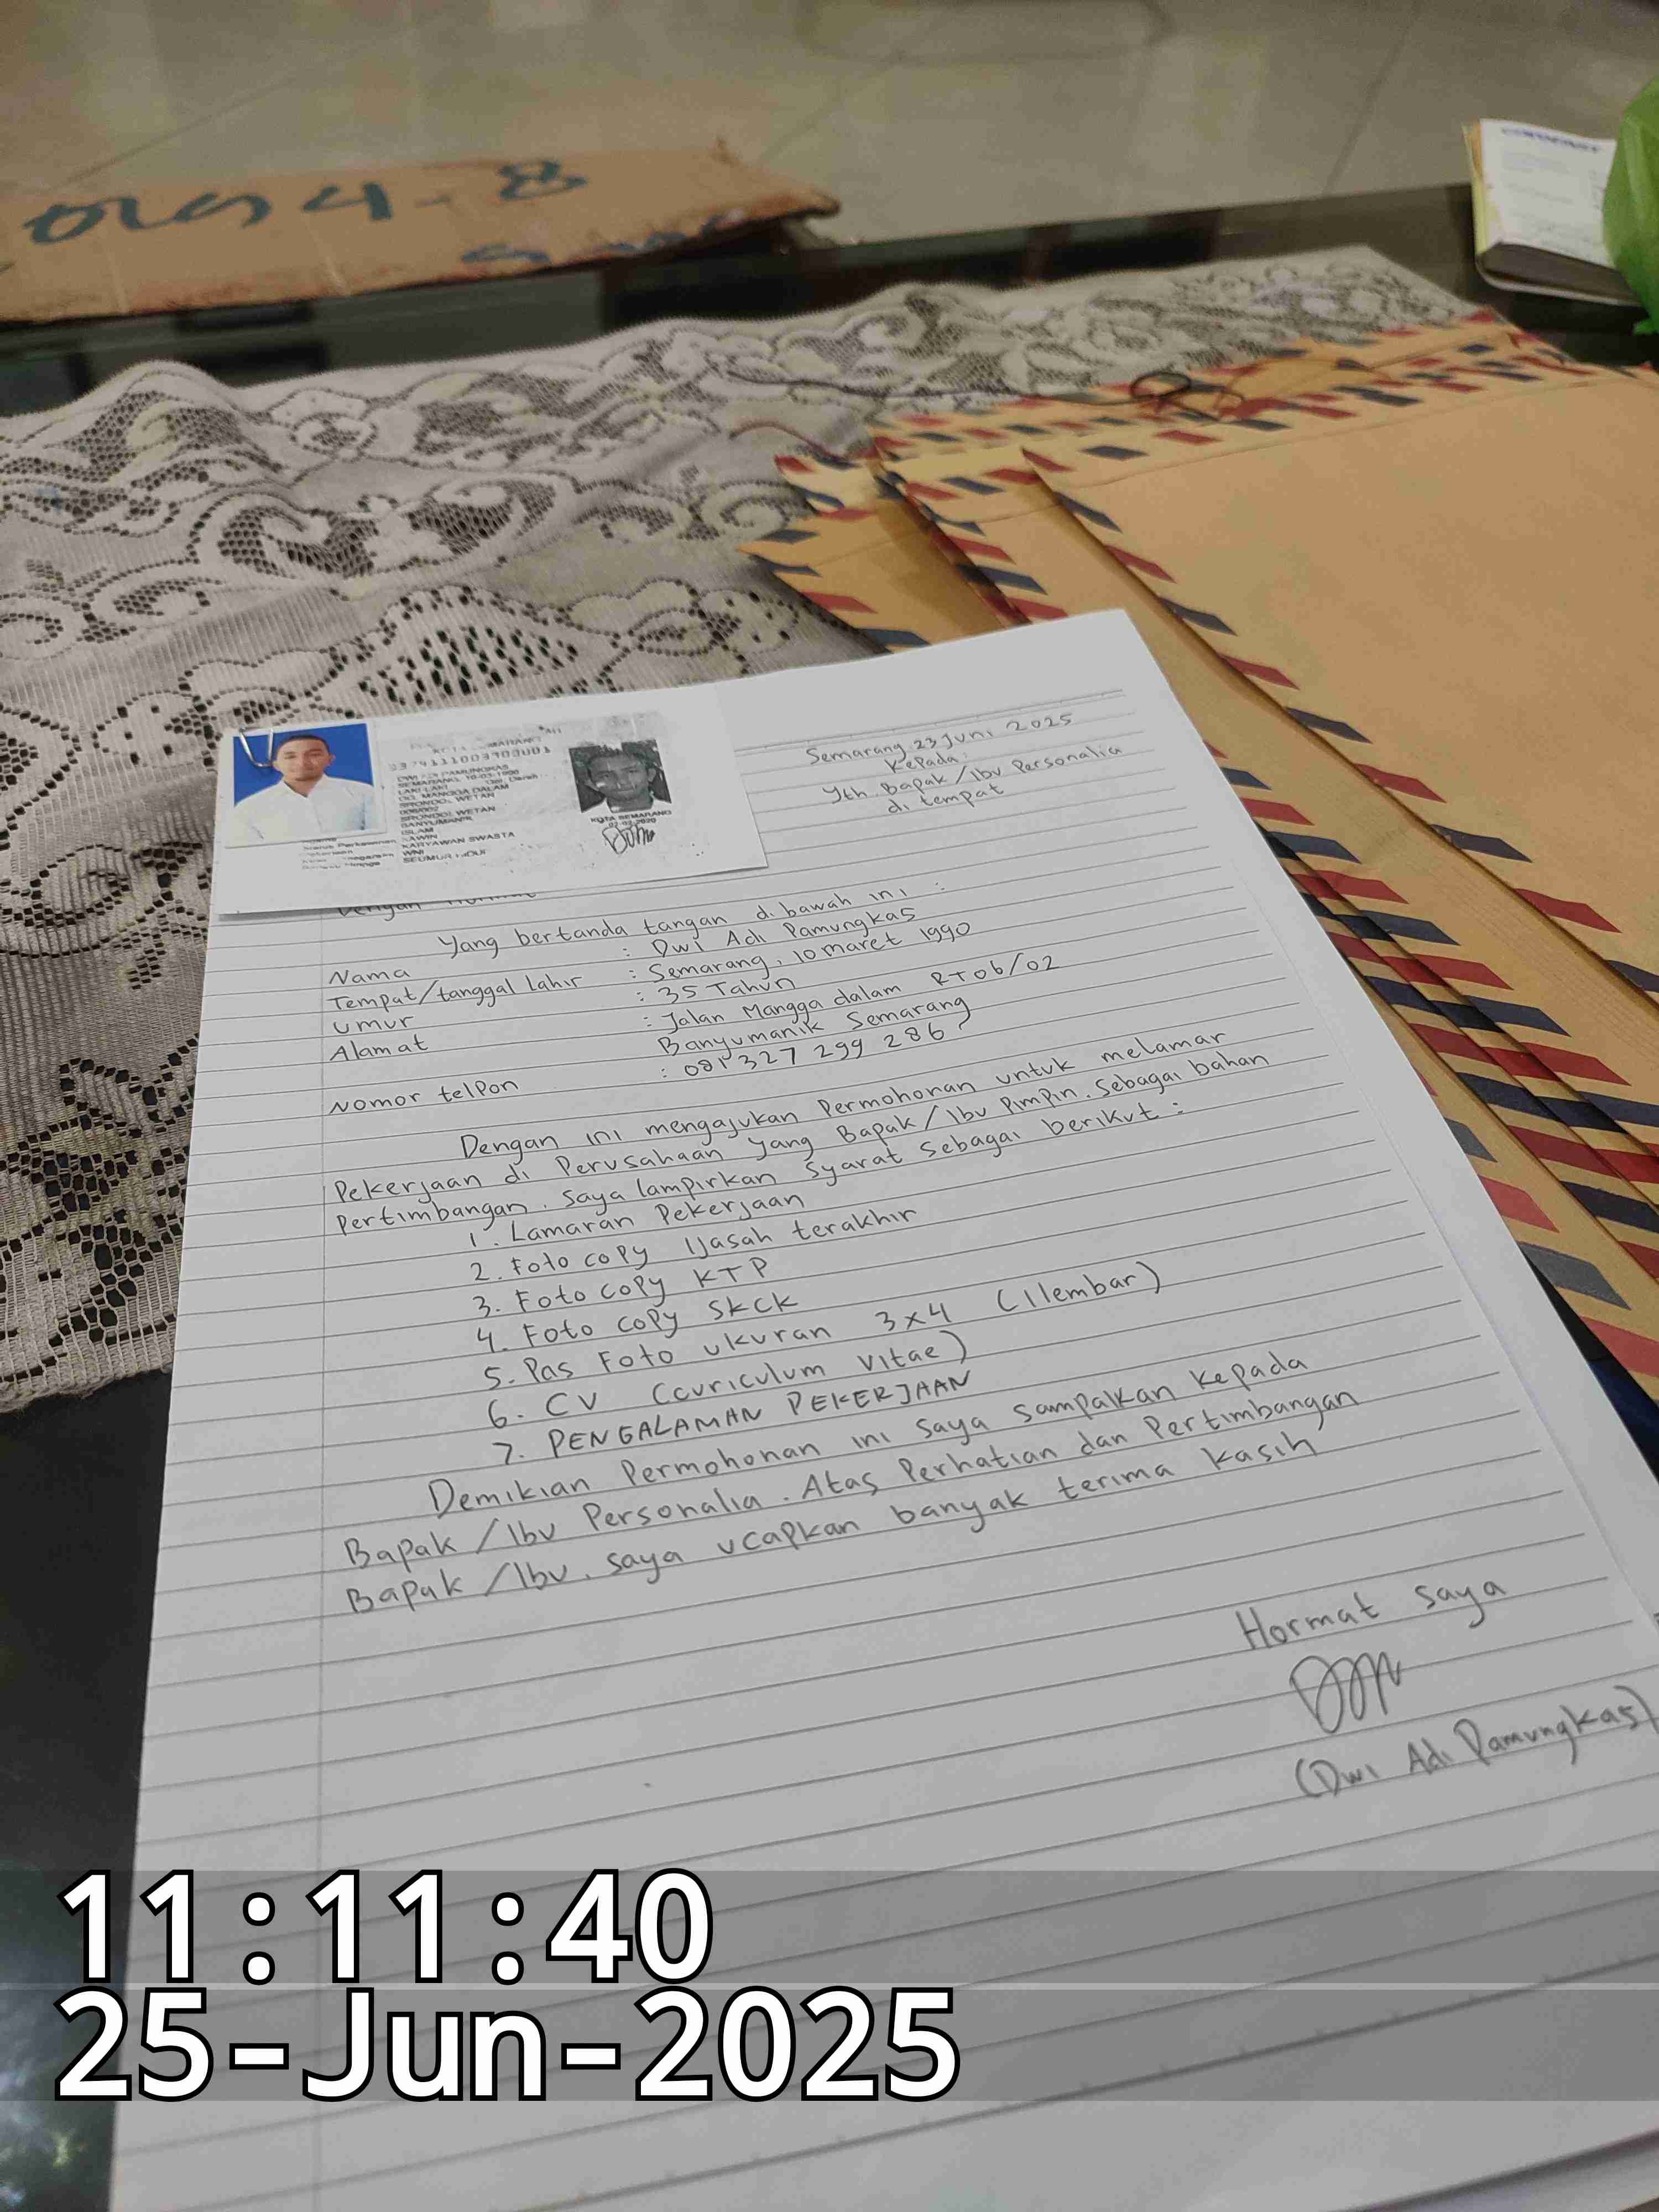 Semarang, 23 Juni 2025
Kepada:
Yth. Bapak/Ibu Personalia
di tempat
KOTA SEMARANG
SEMARANG, 10-03-1990
LAKI-LAKI
MANGGA DALAM
SRONDOL WETAN
BANYUMANIK
ISLAM
KAWIN
KARYAWAN SWASTA
WNI
SEUMUR HIDUP
KOTA SEMARANG
Yang bertanda tangan di bawah ini :
Nama : Dwi Adi Pamungkas
Tempat/tanggal Lahir : Semarang, 10 maret 1990
Umur : 35 Tahun
Alamat : Jalan Mangga dalam RT06/02
Banyumanik Semarang
Nomor telpon : 081 327 299 286
Dengan ini mengajukan Permohonan untuk melamar
Pekerjaan di Perusahaan yang Bapak/Ibu Pimpin. Sebagai bahan
Pertimbangan. Saya lampirkan Syarat Sebagai berikut :
1. Lamaran Pekerjaan
2. Foto copy Ijasah terakhir
3. Foto copy KTP
4. Foto copy SKCK
5. Pas Foto ukuran 3x4 (1lembar)
6. CV (curiculum vitae)
7. PENGALAMAN PEKERJAAN
Demikian Permohonan ini saya sampaikan kepada
Bapak/Ibu Personalia. Atas Perhatian dan Pertimbangan
Bapak/Ibu. saya ucapkan banyak terima kasih
Hormat saya
(Dwi Adi Pamungkas)
11:11:40
25-Jun-2025